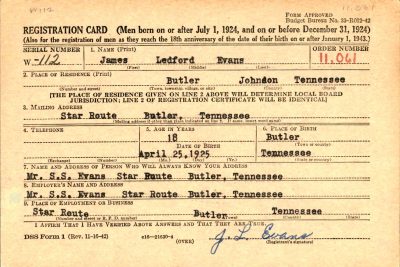 W112
11,061
FORM APPROVED
Budget Bureau No. 33-R012-42
REGISTRATION CARD (Men born on or after July 1, 1924, and on or before December 31, 1924)
(Also for the registration of men as they reach the 18th anniversary of the date of their birth on or after January 1, 1943.)
SERIAL NUMBER
1. NAME (Print)
ORDER NUMBER
W-112
James Ledford Evans
11,061
(First) (Middle) (Last)
2. PLACE OF RESIDENCE (Print)
Butler Johndon Tennessee
(Number and street) (Town, township, village, or city) (County) (State)
[THE PLACE OF RESIDENCE GIVEN ON LINE 2 ABOVE WILL DETERMINE LOCAL BOARD
JURISDICTION; LINE 2 OF REGISTRATION CERTIFICATE WILL BE IDENTICAL]
3. MAILING ADDRESS
Star Route Butler, Tennessee
[Mailing address if other than place indicated on line 2. If same, insert word same]
4. TELEPHONE
5. AGE IN YEARS
6. PLACE OF BIRTH
18
Butler
DATE OF BIRTH
(Town or county)
April 25, 1925
Tennessee
(Exchange) (Number)
(Mo.) (Day) (Yr.)
(State or country)
7. NAME AND ADDRESS OF PERSON WHO WILL ALWAYS KNOW YOUR ADDRESS
Mr. S.S. Evans Star Route Butler, Tennessee
8. EMPLOYER'S NAME AND ADDRESS
Mr. S.S. Evans Star Route Butler, Tennessee
9. PLACE OF EMPLOYMENT OR BUSINESS
Star Route Butler Tennessee
(Number and street or R. F. D. number) (Town) (County) (State)
I AFFIRM THAT I HAVE VERIFIED ABOVE ANSWERS AND THAT THEY ARE TRUE.
DSS Form 1 (Rev. 11-16-42)
(OVER)
J. L. Evans
(Registrant's signature)